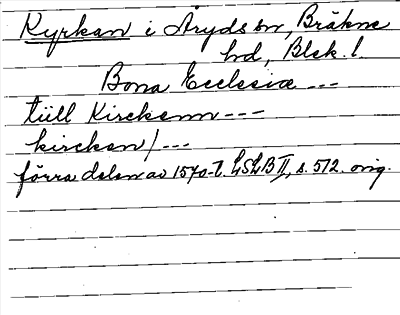 Kyrkan i Åryds sn, Bräkne
hd, Blek. l.
Bona Ecclesiæ ---
tiill Kirckenn ---
kircken/---
förra delen av 1570-t. LSLB II, s. 512. orig.